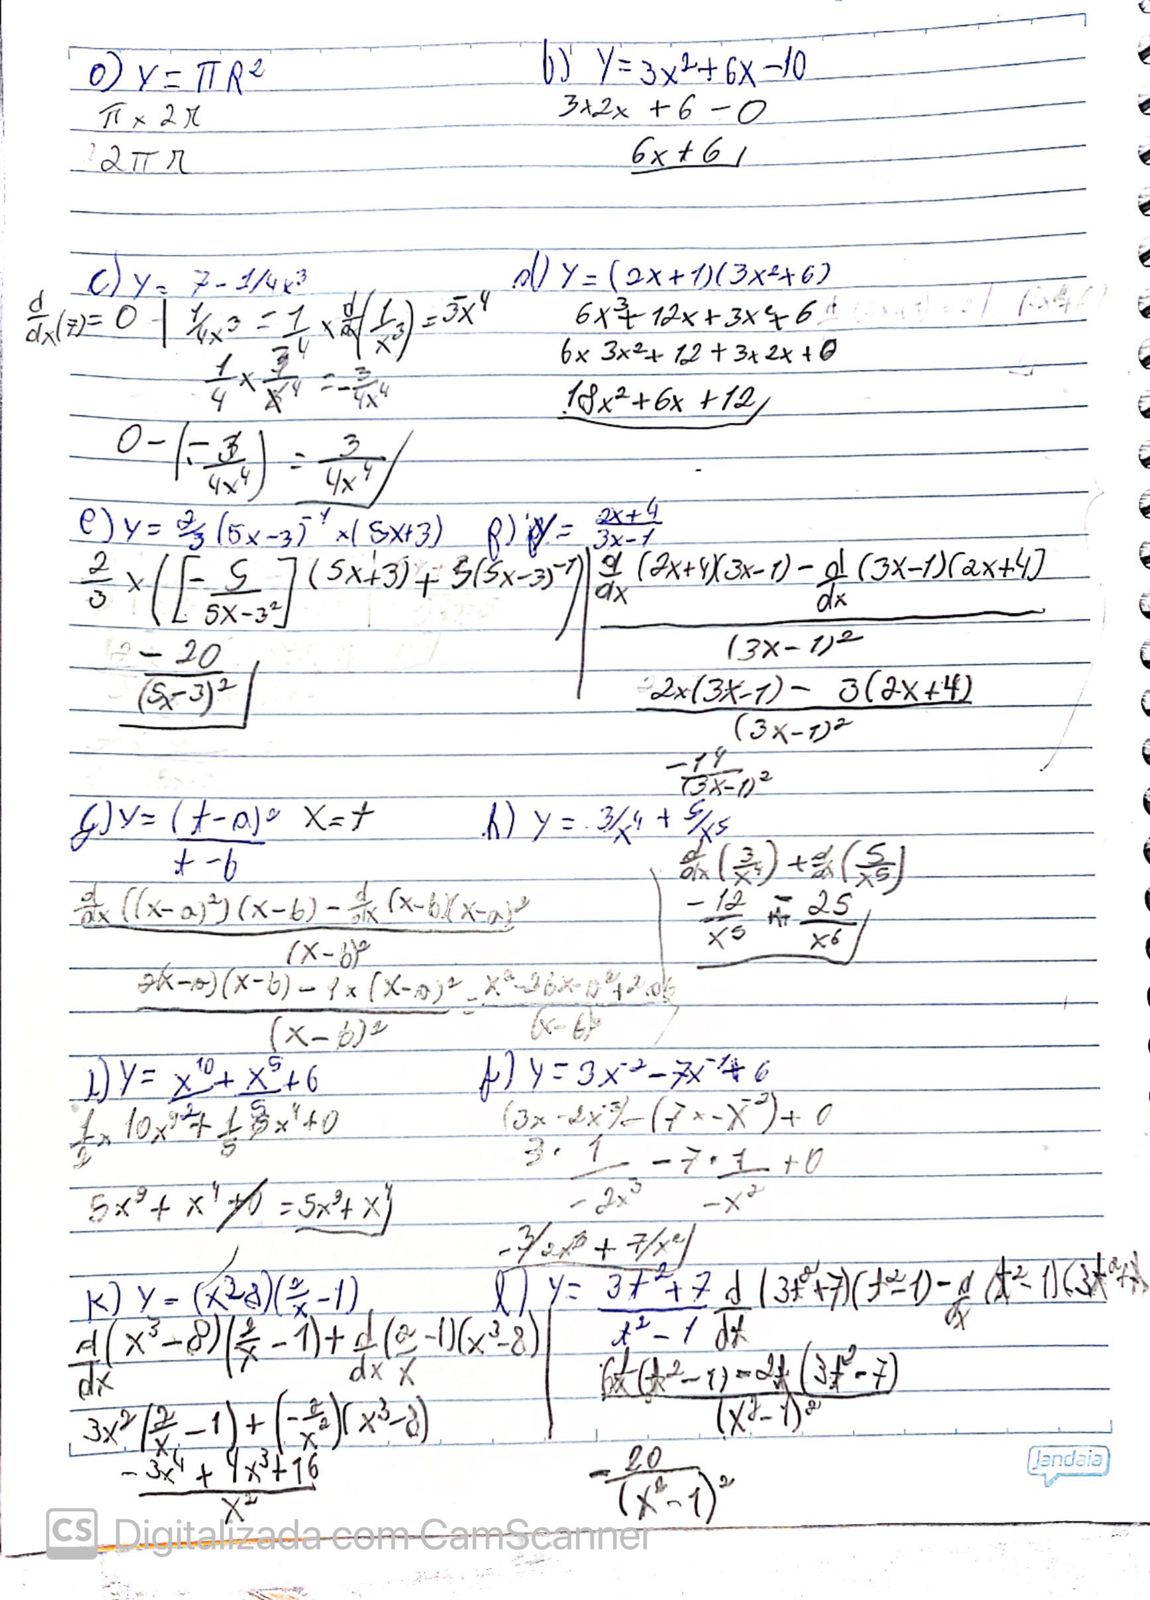 a) Y = πR²
π × 2r
2πr
b) Y = 3x² + 6x - 10
3×2x + 6 - 0
6x + 6
c) Y = 7 - 1/4x³
d/dx(7) = 0 | 1/4x³ = 1/4 × d/dx(1/x³) = 3x⁴
1/4 × 3/x⁴ = -3/4x⁴
0 - (-3/4x⁴) = 3/4x⁴
d) Y = (2x+1)(3x²+6)
6x³ + 12x + 3x² + 6
6×3x² + 12 + 3×2x + 0
18x² + 6x + 12
e) Y = 2/3 (5x-3)⁻¹ × (5x+3)
2/3 × ([-5/5x-3²] (5x+3) + 5(5x-3)⁻¹)
-20/(5x-3)²
f) Y = 2x+4/3x-1
d/dx (2x+4)(3x-1) - d/dx (3x-1)(2x+4)
(3x-1)²
2×(3x-1) - 3(2x+4)
(3x-1)²
-14/(3x-1)²
g) Y = (t-a)²/t-b X = t
d/dx ((x-a)²)(x-b) - d/dx (x-b)(x-a)²
(x-b)²
2(x-a)(x-b) - 1×(x-a)² = x²-2bx-a²+2ab
(x-b)² (x-b)²
h) Y = 3/x⁴ + 5/x⁵
d/dx (3/x⁴) + d/dx (5/x⁵)
-12/x⁵ - 25/x⁶
i) Y = x¹⁰/2 + x⁵/5 + 6
1/2 × 10x⁹ + 1/5 5x⁴ + 0
5x⁹ + x⁴ + 0 = 5x⁹ + x⁴
j) Y = 3x⁻² - 7x⁻¹ + 6
(3×-2x⁻³) - (7×-x⁻²) + 0
3 · 1/-2x³ - 7 · 1/-x² + 0
-3/2x³ + 7/x²
k) Y = (x³-8)(2/x - 1)
d/dx (x³-8)(2/x - 1) + d/dx (2/x - 1)(x³-8)
3x² (2/x - 1) + (-2/x²)(x³-8)
-3x⁴ + 4x³ + 16
x²
l) Y = 3t²+7/t²-1 d/dt (3t²+7)(t²-1) - d/dx (t²-1)(3t²+7)
6t(t²-1) - 2t (3t²-7)
(x²-1)²
-20/(x²-1)²
Jandaia
CS Digitalizada com CamScanner